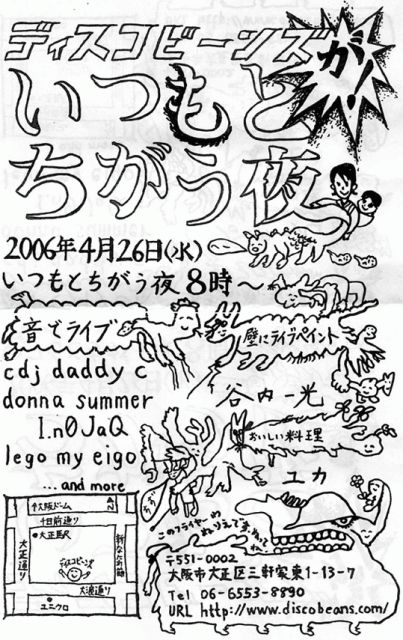 ディスコビーンズが!
いつもと
ちがう夜
2006年4月26日(水)
いつもとちがう夜8時〜
音でライブ
cdj daddy c
donna summer
I.n0JaQ
lego my eigo
...and more
壁にライブペイント
谷内一光
おいしい料理
ユカ
このフライヤーの
↑大阪ドーム
千日前通り
大正駅
大正通り
ディスコビーンズ
大浪通り
ユニクロ
〒551-0002
大阪市大正区三軒家東1-13-7
Tel 06-6553-8890
URL http://www.discobeans.com/